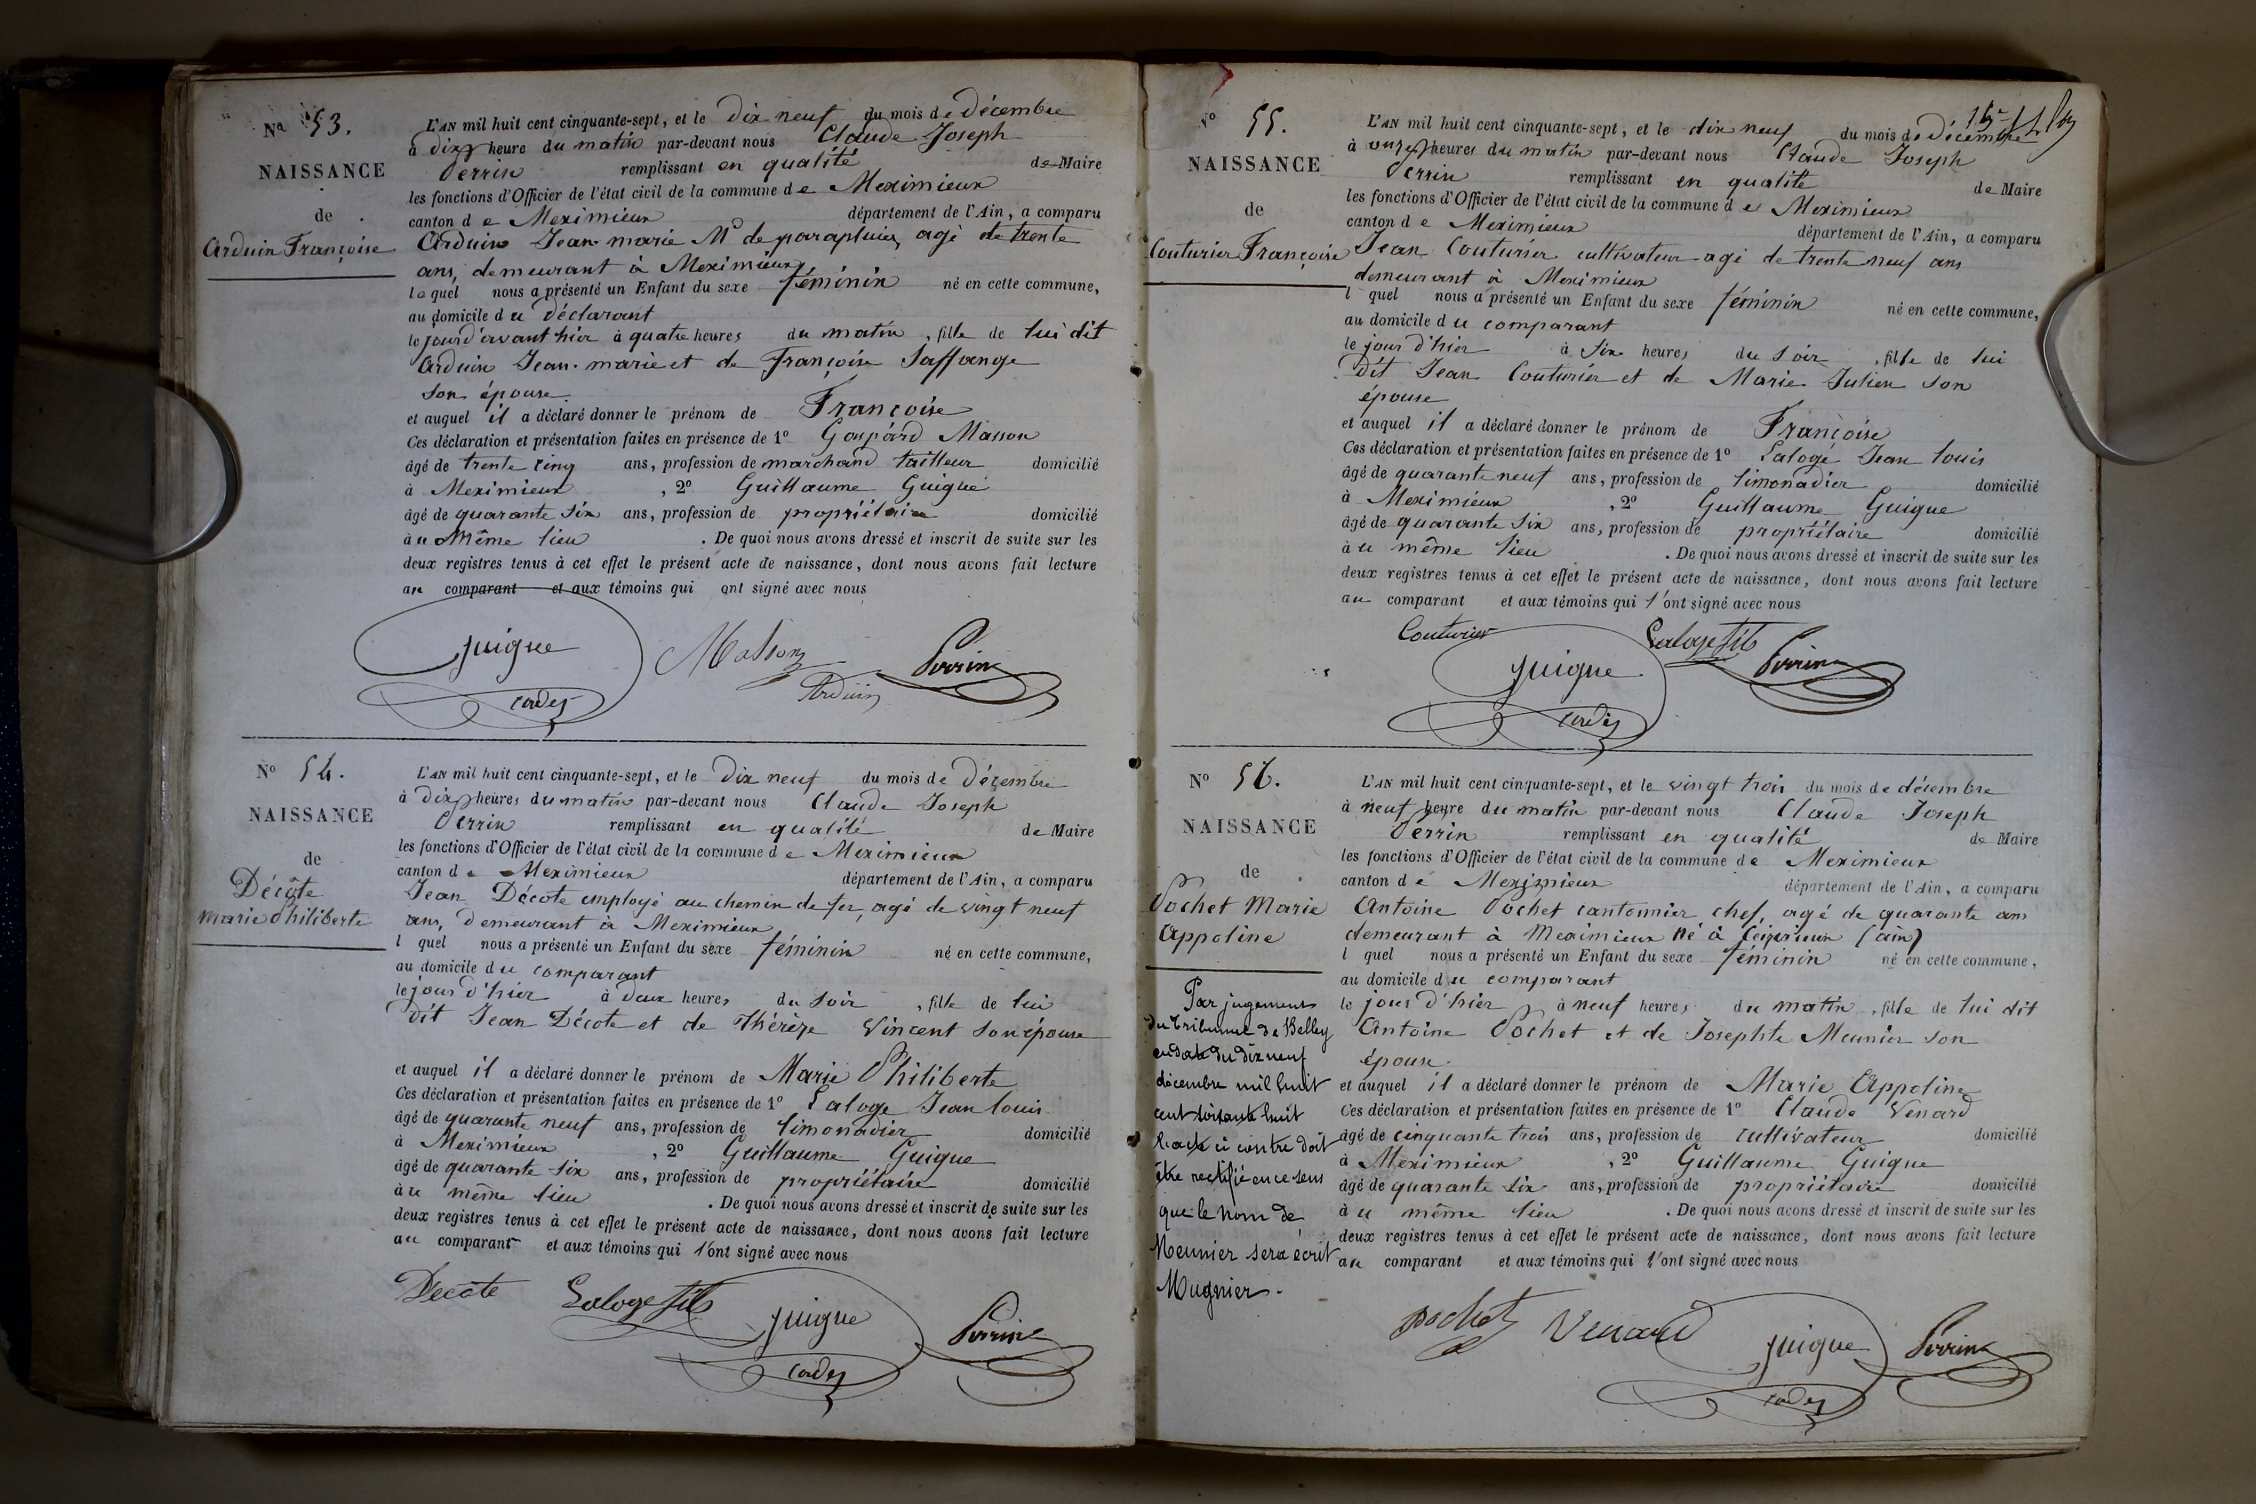 Nº 53.
NAISSANCE
de
Arduin Françoise
L'AN mil huit cent cinquante-sept, et le dix neuf du mois de décembre
à dix heure du matin par-devant nous Claude Joseph
Perrin remplissant en qualité de Maire
les fonctions d'Officier de l'état civil de la commune de Meximieux
canton de Meximieux département de l'Ain, a comparu
Arduin Jean-marie Md de parapluies, agé de trente
ans, demeurant à Meximieux
lequel nous a présenté un Enfant du sexe féminin né en cette commune,
au domicile du déclarant
le jour d'avant hier à quatre heures du matin, fille de lui dit
Arduin Jean-marie et de Françoise Saffange
son épouse
et auquel il a déclaré donner le prénom de Françoise
Ces déclaration et présentation faites en présence de 1º Gaspard Masson
âgé de trente cinq ans, profession de marchand tailleur domicilié
à Meximieux, 2º Guillaume Guigue
âgé de quarante six ans, profession de propriétaire domicilié
au même lieu. De quoi nous avons dressé et inscrit de suite sur les
deux registres tenus à cet effet le présent acte de naissance, dont nous avons fait lecture
au comparant et aux témoins qui ont signé avec nous
Guigue Masson Perrin
Arduin
Nº 54.
NAISSANCE
de
Décôte
marie Philiberte
L'AN mil huit cent cinquante-sept, et le dix neuf du mois de décembre
à dix heures du matin par-devant nous Claude Joseph
Perrin remplissant en qualité de Maire
les fonctions d'Officier de l'état civil de la commune de Meximieux
canton de Meximieux département de l'Ain, a comparu
Jean Décote employé au chemin de fer, agé de vingt neuf
ans, demeurant à Meximieux
l quel nous a présenté un Enfant du sexe féminin né en cette commune,
au domicile du comparant
le jour d'hier à deux heures du soir, fille de lui
dit Jean Décote et de Thérèze Vincent son épouse
et auquel il a déclaré donner le prénom de Marie Philiberte
Ces déclaration et présentation faites en présence de 1º Laloge Jean louis
âgé de quarante neuf ans, profession de limonadier domicilié
à Meximieux, 2º Guillaume Guigue
âgé de quarante six ans, profession de propriétaire domicilié
au même lieu. De quoi nous avons dressé et inscrit de suite sur les
deux registres tenus à cet effet le présent acte de naissance, dont nous avons fait lecture
au comparant et aux témoins qui l'ont signé avec nous
Decôte Laloge fils Guigue Perrin
Nº 55.
NAISSANCE
de
Couturier Françoise
L'AN mil huit cent cinquante-sept, et le dix neuf du mois de décembre
à onze heures du matin par-devant nous Claude Joseph
Perrin remplissant en qualité de Maire
les fonctions d'Officier de l'état civil de la commune de Meximieux
canton de Meximieux département de l'Ain, a comparu
Jean Couturier cultivateur agé de trente neuf ans
demeurant à Meximieux
l quel nous a présenté un Enfant du sexe féminin né en cette commune,
au domicile du comparant
le jour d'hier à six heures du soir, fille de lui
dit Jean Couturier et de Marie Julien son
épouse
et auquel il a déclaré donner le prénom de Françoise
Ces déclaration et présentation faites en présence de 1º Laloge Jean louis
âgé de quarante neuf ans, profession de limonadier domicilié
à Meximieux, 2º Guillaume Guigue
âgé de quarante six ans, profession de propriétaire domicilié
au même lieu. De quoi nous avons dressé et inscrit de suite sur les
deux registres tenus à cet effet le présent acte de naissance, dont nous avons fait lecture
au comparant et aux témoins qui l'ont signé avec nous
Couturier Laloge fils
Guigue Perrin
Nº 56.
NAISSANCE
de
Pochet Marie
Appoline
Par jugement
du tribunal de Belley
en date du dix neuf
décembre mil huit
cent soixante huit
l'acte ci contre doit
être rectifié en ce sens
que le nom de
Meunier sera écrit
Mugnier.
L'AN mil huit cent cinquante-sept, et le vingt trois du mois de décembre
à neuf heure du matin par-devant nous Claude Joseph
Perrin remplissant en qualité de Maire
les fonctions d'Officier de l'état civil de la commune de Meximieux
canton de Meximieux département de l'Ain, a comparu
Antoine Pochet cantonnier chef, agé de quarante ans
demeurant à Meximieux né à Ceyzérieux (ain)
l quel nous a présenté un Enfant du sexe féminin né en cette commune,
au domicile du comparant
le jour d'hier à neuf heures du matin, fille de lui dit
Antoine Pochet et de Josephte Meunier son
épouse.
et auquel il a déclaré donner le prénom de Marie Appoline
Ces déclaration et présentation faites en présence de 1º Claude Venard
âgé de cinquante trois ans, profession de cultivateur domicilié
à Meximieux, 2º Guillaume Guigue
âgé de quarante six ans, profession de propriétaire domicilié
au même lieu. De quoi nous avons dressé et inscrit de suite sur les
deux registres tenus à cet effet le présent acte de naissance, dont nous avons fait lecture
au comparant et aux témoins qui l'ont signé avec nous
Pochet Venard Guigue Perrin